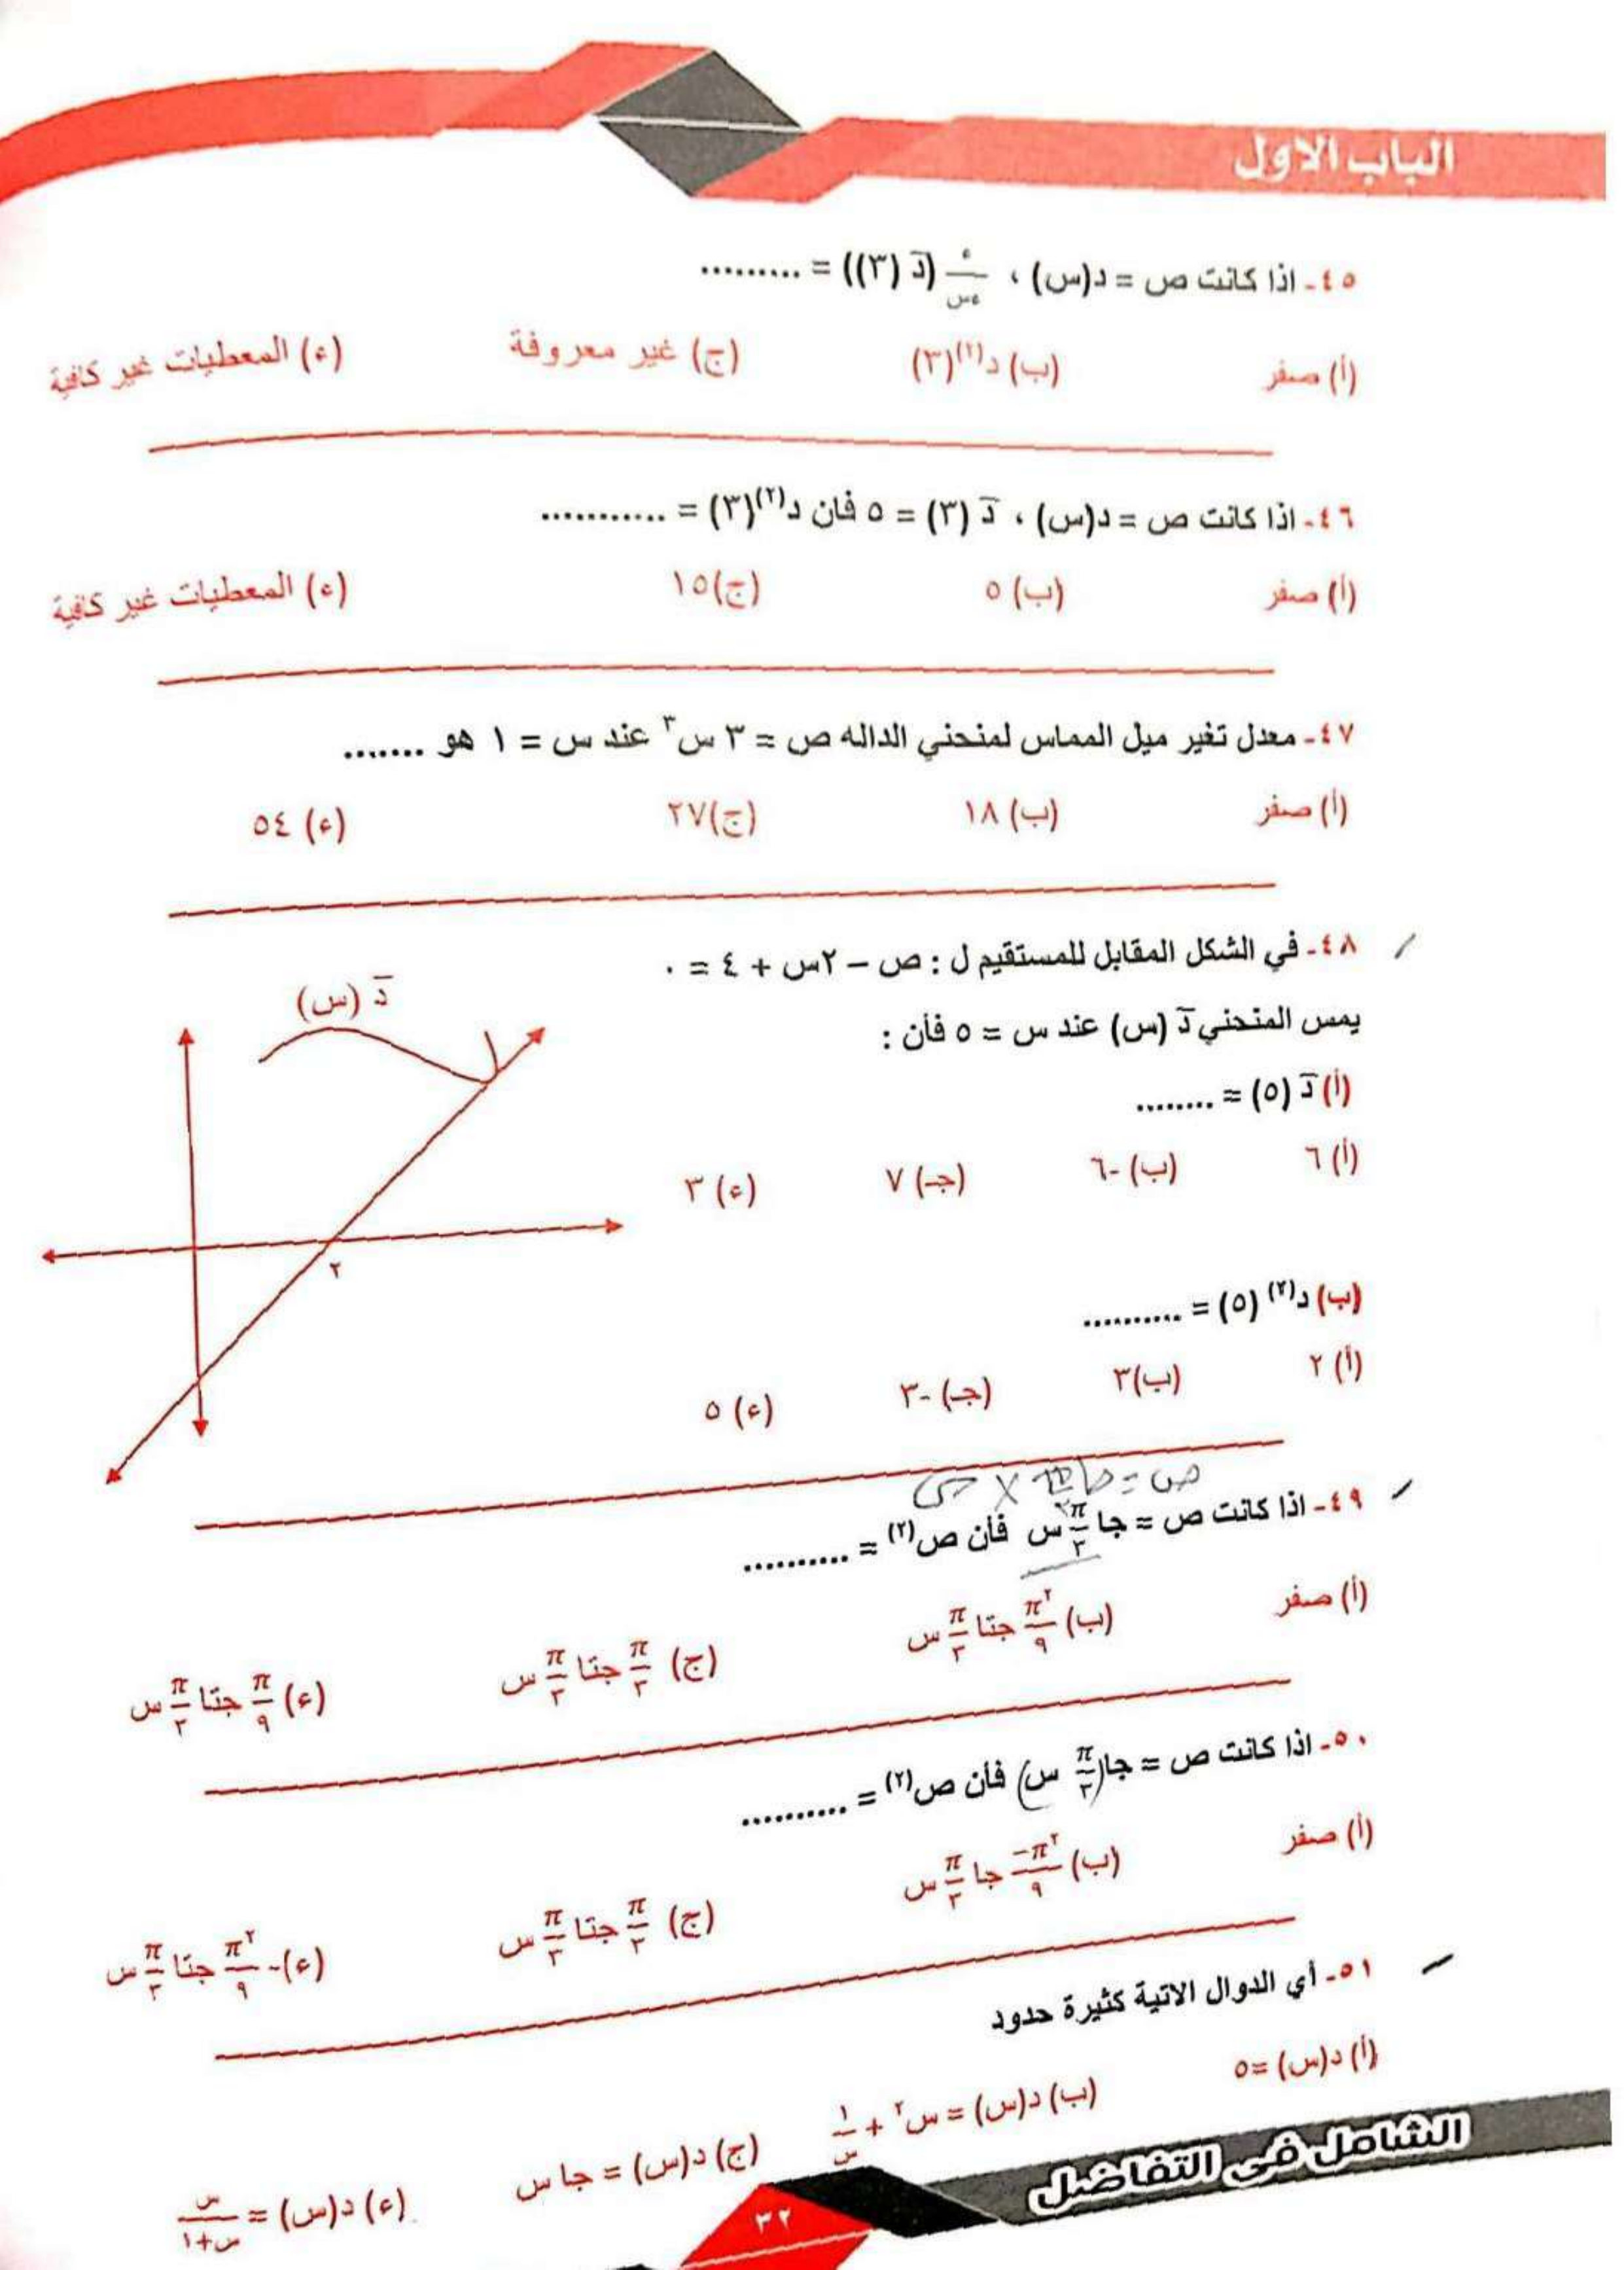 الباب الاول
٤٥- اذا كانت ص = د(س) ، ء/ءس (د̄ (٣)) = .........
(أ) صفر (ب) د⁽²⁾(٣) (ج) غير معروفة (ء) المعطيات غير كافية
٤٦- اذا كانت ص = د(س) ، د̄ (٣) = ٥ فان د⁽²⁾(٣) = ...........
(أ) صفر (ب) ٥ (ج) ١٥ (ء) المعطيات غير كافية
٤٧- معدل تغير ميل المماس لمنحني الداله ص = ٣ س³ عند س = ١ هو .......
(أ) صفر (ب) ١٨ (ج) ٢٧ (ء) ٥٤
٤٨- في الشكل المقابل للمستقيم ل : ص – ٢س + ٤ = ٠
يمس المنحني د̄ (س) عند س = ٥ فأن :
د̄ (س)
(أ) د̄ (٥) = ........
(أ) ٦ (ب) -٦ (جـ) ٧ (ء) ٣
٢
(ب) د⁽²⁾ (٥) = ..........
(أ) ٢ (ب) ٣ (جـ) -٣ (ء) ٥
٤٩- اذا كانت ص = جا π/٣ س فأن ص⁽²⁾ = ..........
(أ) صفر (ب) π²/٩ جتا π/٣ س (ج) π/٣ جتا π/٣ س (ء) π/٩ جتا π/٣ س
٥٠- اذا كانت ص = جا(π/٣ س) فأن ص⁽²⁾ = ..........
(أ) صفر (ب) -π²/٩ جا π/٣ س (ج) π/٣ جتا π/٣ س (ء) - π²/٩ جتا π/٣ س
٥١- أي الدوال الاتية كثيرة حدود
(أ) د(س) = ٥ (ب) د(س) = س² + ١/س (ج) د(س) = جا س (ء) د(س) = س/س+١
الشامل في التفاضل
٣٢